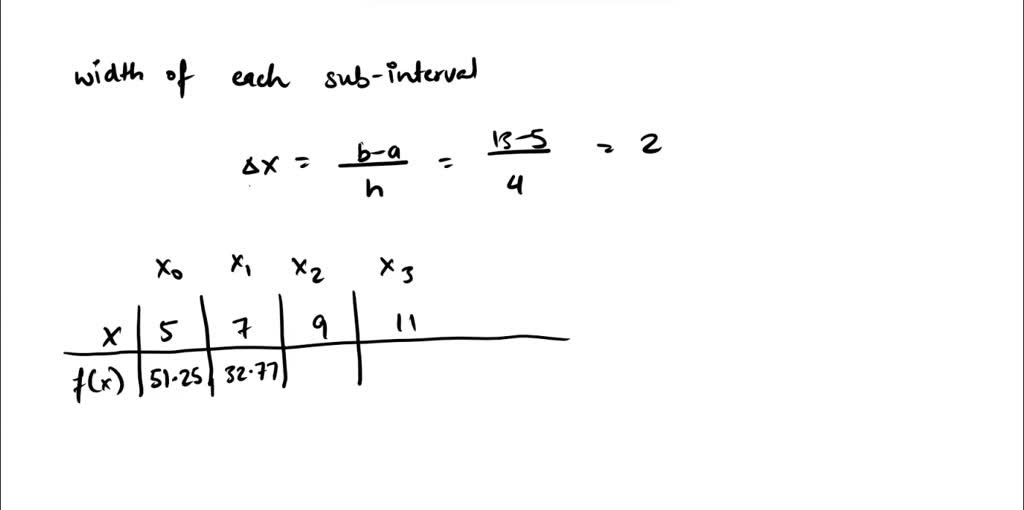 width of each sub-interval
Δx = b-a/n = 13-5/4 = 2
x₀ x₁ x₂ x₃
x 5 7 9 11
f(x) 51.25 32.77